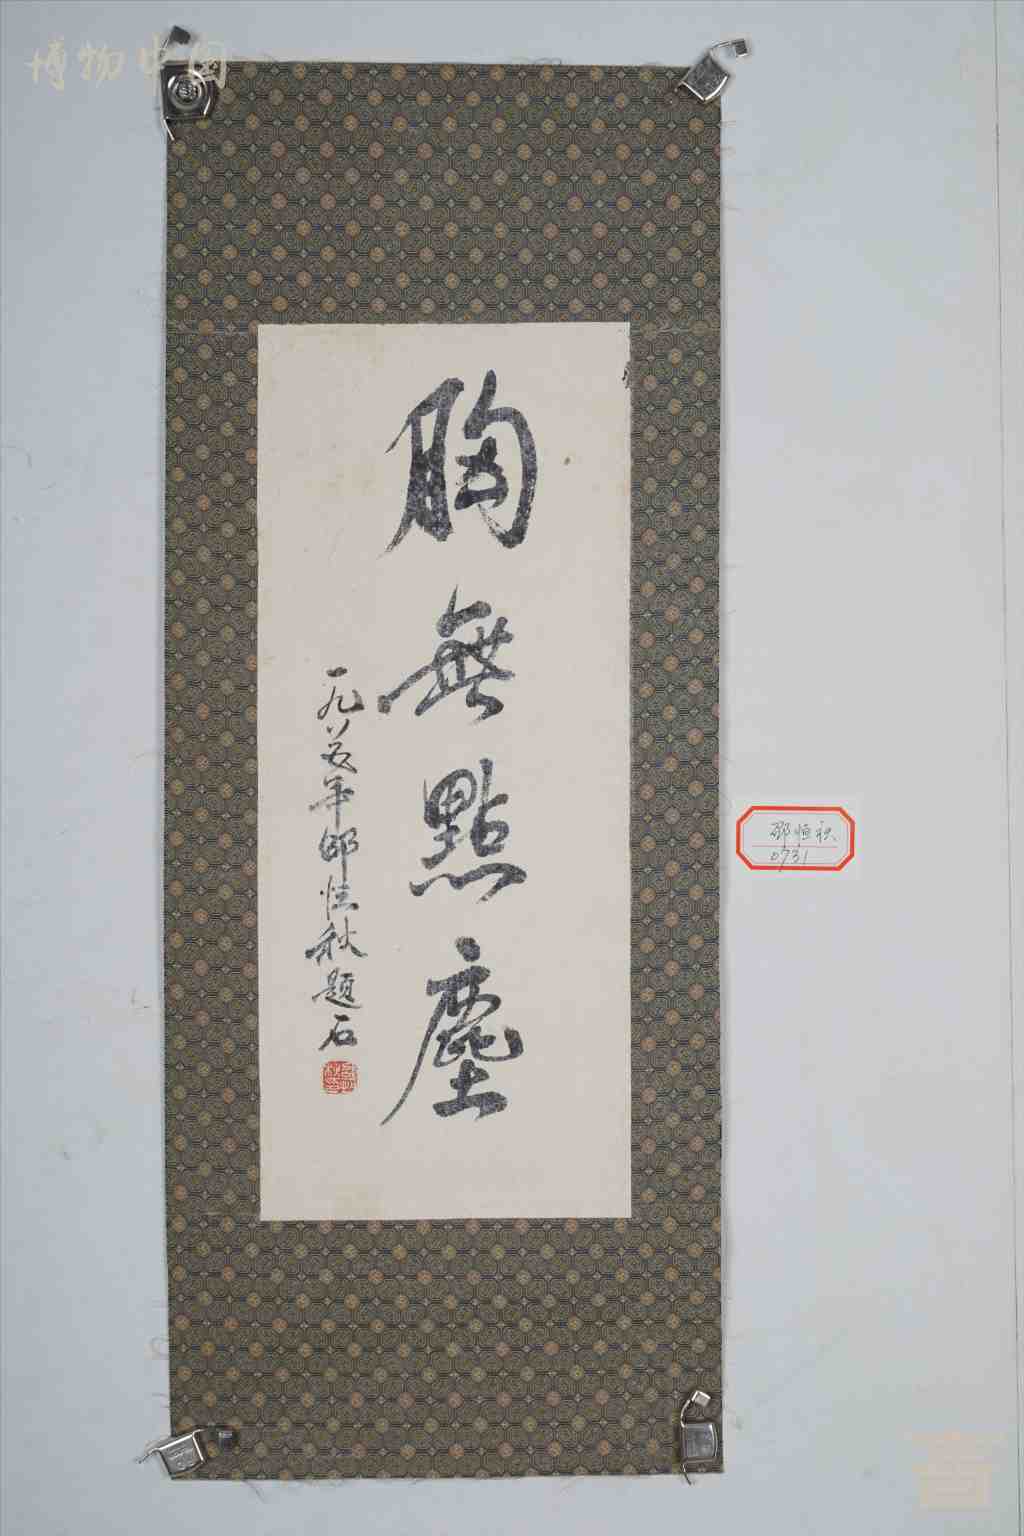 博物中国
胸無點塵
一九八五年邵恒秋題石
邵恒秋
0731